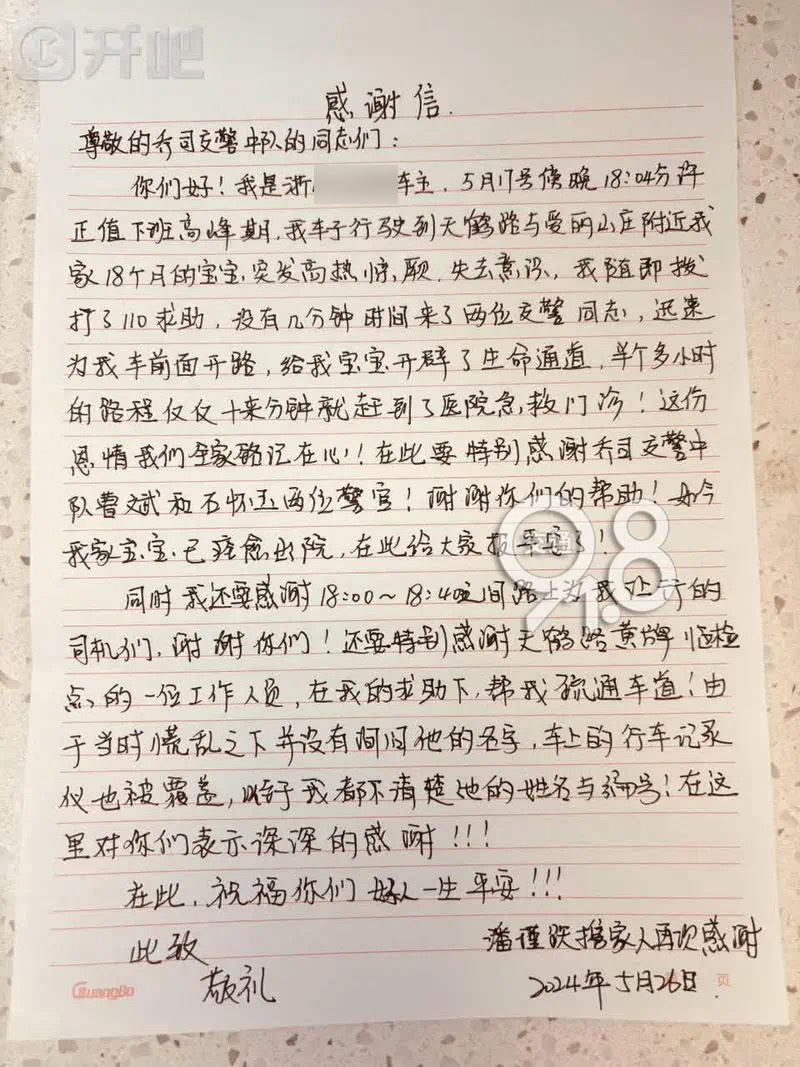 开吧
感谢信.
尊敬的乔司交警中队的同志们:
你们好!我是浙 车主,5月17号傍晚18:04分许
正值下班高峰期,我车子行驶到天鹤路与爱丽山庄附近我
家18个月的宝宝突发高热惊厥,失去意识,我随即拨
打了110求助,没有几分钟时间来了两位交警同志,迅速
为我车前面开路,给我宝宝开辟了生命通道,半个多小时
的路程仅仅十来分钟就赶到了医院急救门诊!这份
恩情我们全家铭记在心!在此要特别感谢乔司交警中
队曹斌和石怀玉两位警官!谢谢你们的帮助!如今
我家宝宝已痊愈出院,在此给大家报平安了!
交通
91.8
同时我还要感谢18:00~18:40之间路上为我让行的
司机们,谢谢你们!还要特别感谢天鹤路黄牌临检
点的一位工作人员,在我的求助下,帮我疏通车道!由
于当时慌乱之下并没有询问他的名字,车上的行车记录
仪也被覆盖,以至于我都不清楚他的姓名与编号!在这
里对你们表示深深的感谢!!!
在此,祝福你们好人一生平安!!!
此致
敬礼
潘 携家人再次感谢
2024年5月26日
GuangBo
页